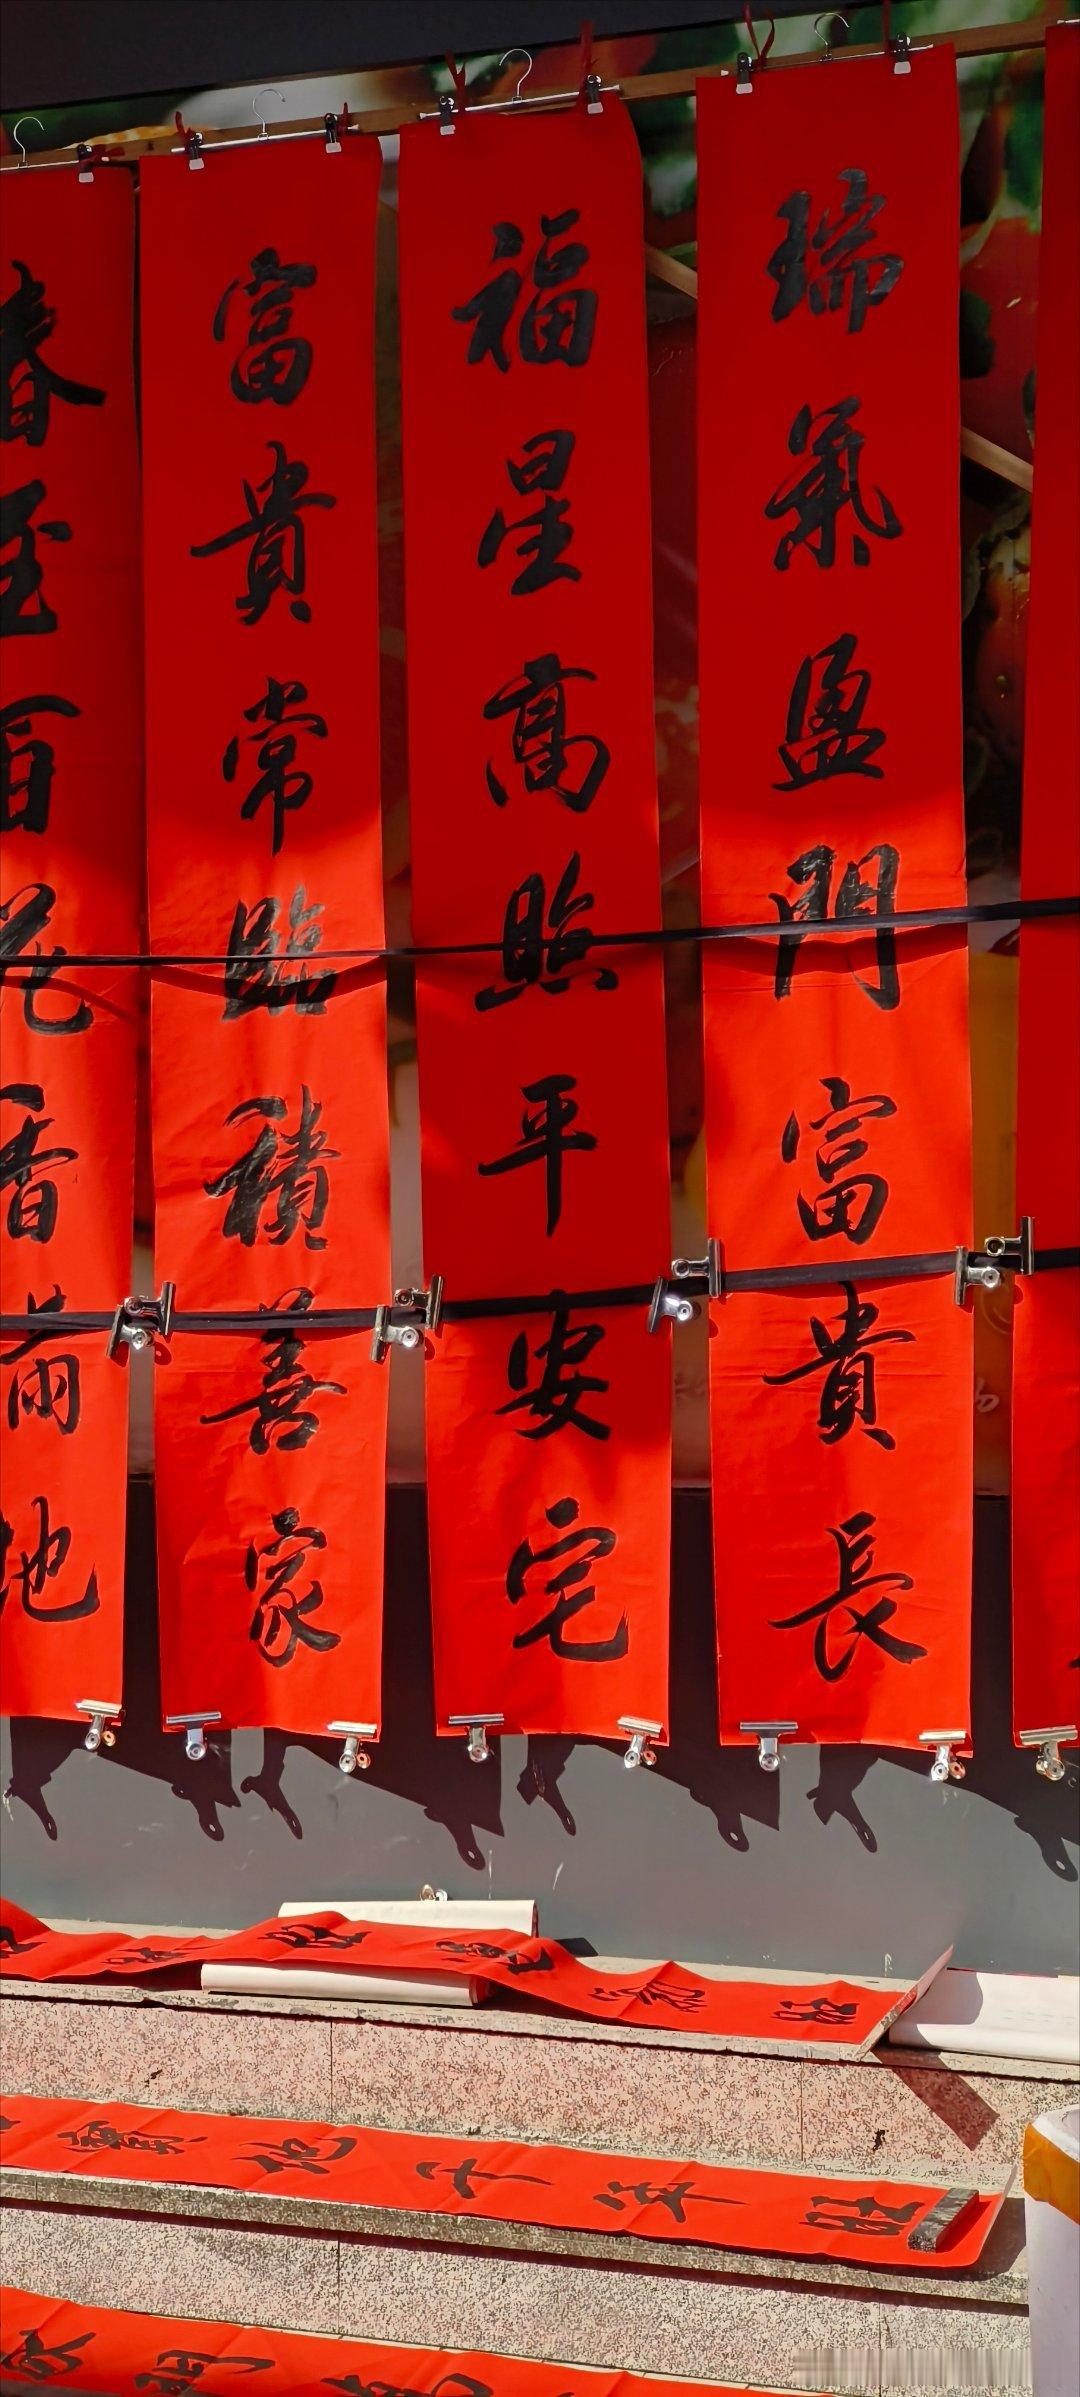 瑞氣盈門富貴長
福星高照平安宅
富貴常臨積善家
春至百花香滿地
千年旺